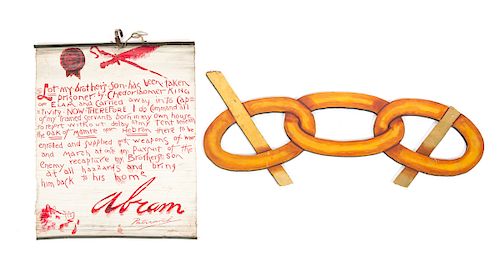 Lot my brothers son has been taken
prisoner by Chedorlaomer KING
OF ELAM and carried away into CAP-
tivity NOW THEREFORE I do command all
of my trained servants born in my own house
to report without delay at my TENT beneath
the OAK of MAMRE near Hebron there to be
enrolled and supplied with weapons of war
and march at once in pursuit of the
Enemy recapture my Brothers son
at all hazzards and bring
him back to his home
Abram